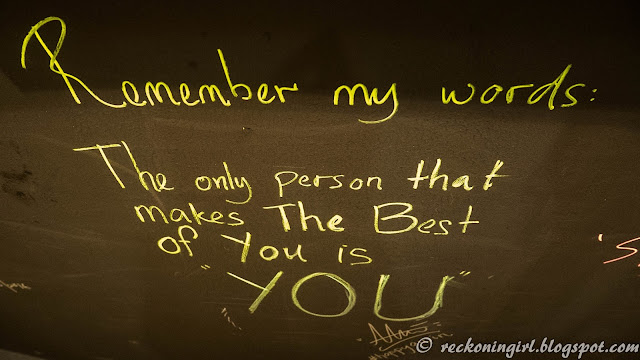 Remember my words:
The only person that
makes The Best
of You is
"YOU"
© reckoningirl.blogspot.com